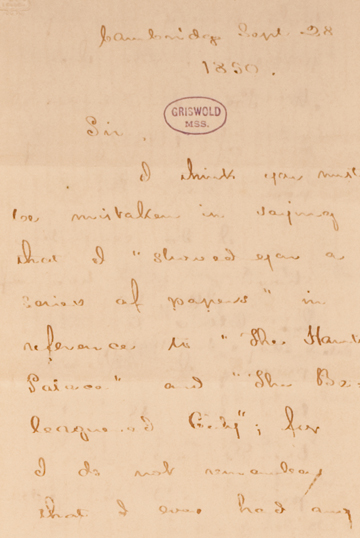 Cambridge Sept. 28
1850.
GRISWOLD
MSS.
Sir.
I think you must
be mistaken in saying
that I "showed you a
series of papers" in
reference to "The Haunted
Palace" and "The Be-
leaguered City"; for
I do not remember
that I ever had any